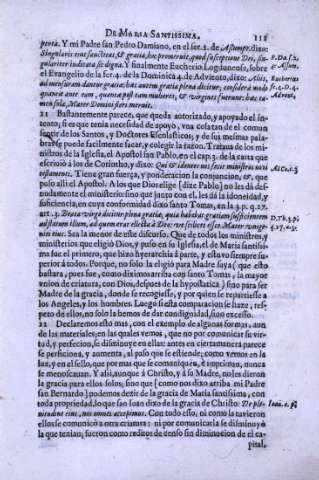 DE MARIA SANTISSIMA. 112
perta. Y mi Padre san Pedro Damiano, en el ser. 2. de Assumpt. dixo:
Singularis eius sanctitas, & gratia, hac promeruit, quod susceptione Dei, sin-
gulariter iudicata se digna. Y finalmente Eucherio Lugdunense, sobre
el Evangelio de la fer. 4. de la Dominica 4. de Adviento, dixo: Alijs,
ad mensuram dantur gratiæ: hæc autem gratia plena dicitur, considera modo
quanta ante eam, quanta post eam mulieres, & virgines fuerunt: hæc ta-
men sola, Mater Domini fieri meruit.
21 Bastantemente parece, que queda autorizado, y apoyado el in-
tento, si es que tenia necesidad de apoyo, vna cosa tan de el comun
sentir de los Santos, y Doctores Escolasticos; y de sus mesmas pala-
bras se puede facilmente sacar, y colegir la razon. Trataua de los mi-
nistros de la Iglesia, el Apostol san Pablo, en el cap. 3. de la carta que
escriuiò a los de Corintho, y dize: Qui & idoneos nos fecit ministros novi
testamenti. Tiene gran fuerça, y ponderacion la conjuncion, &, que
puso alli el Apostol. A los que Dios elige (dize Pablo) no les dà des-
nudamente el ministerio: sino que junto con el, les dà la idoneidad, y
suficiencia, en cuya conformidad dixo santo Tomas, en la 3. p. q. 27.
art. 5. Beata virgo dicitur plena gratia, quia habebat gratiam sufficientem
ad statum illum, ad quem erat electa à Deo: vt scilicet esset Mater vnige-
niti eius. Sea la menor de este discurso. Que de todos los ministros, y
ministerios que eligiò Dios, y puso en su Iglesia, el de Maria santissi-
ma fue el primero, que hizo hyerarchia à parte, y estuvo siempre su-
perior à todos. Porque, no solo la eligiò para Madre suya (que esto
bastara, pues fue, como diximos arriba con santo Tomas, la mayor
vnion de criatura, con Dios, despues de la hypostatica) sino para ser
Madre de la gracia, donde se recogiesse, y por quien se repartiesse a
los Angeles, y los hombres. Luego si esta comparacion se haze, res-
peto de ellos, no solo la hemos de dar condignidad, sino excesso.
22 Declaremos esto mas, con el exemplo de algunas formas, aun
de las materiales; en las quales vemos, que no por comunicar su vir-
tud, y perfeccion, se disminuye en ellas: antes en cierta manera parece
se perficiona, y aumenta, al passo que se estiende; como vemos en la
luz, y en el sello, que por mas que se comunique, è imprima, nunca
se menoscaban. Y assi, aunque à Christo, y à su Madre, no les dieron
la gracia para ellos solos; sino que [como nos dixo arriba mi Padre
san Bernardo] podemos dezir de la gracia de Maria santissima, con
toda propriedad, lo que san Iuan dixo de la gracia de Christo: De ple-
nitudine eius, nos omnes accepimus. Con todo esso, ni como la tuvieron
ellos se comunicò a otra criatura: ni por comunicarla se disminuyò
la que tenian; fueron como reditos de censo sin diminucion de el ca-
pital,
P. Da. s. 2.
de Assum.
Eucherius
fer. 4. D. 4.
Advent.
Ad Co. c. 3
D. Th. 3. p.
q. 27. a. 5.
Ioan. c. 1.